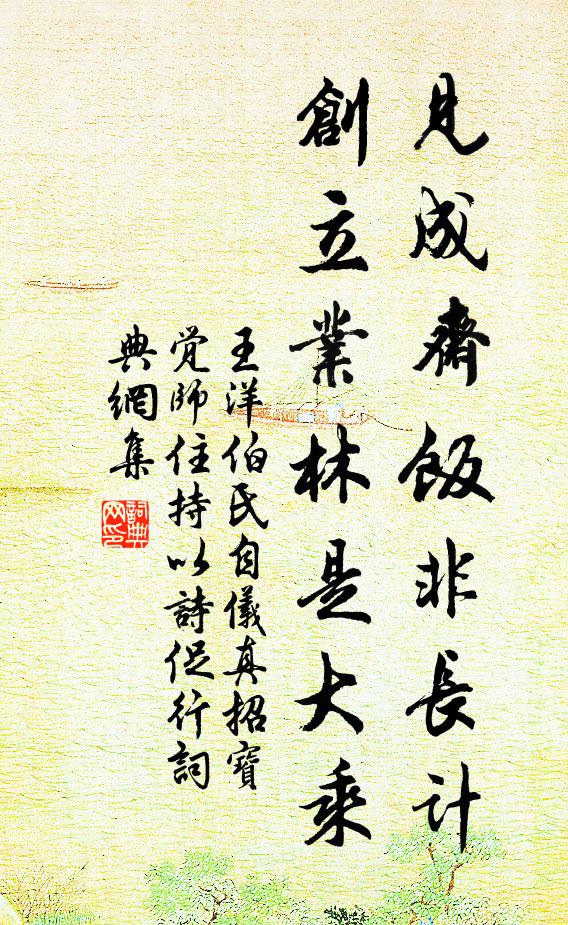 見成齋飯非長計
創立業林是大乘
王洋伯氏自儀真招寶
覺師住持以詩促行詞
典網集
詞典
网印